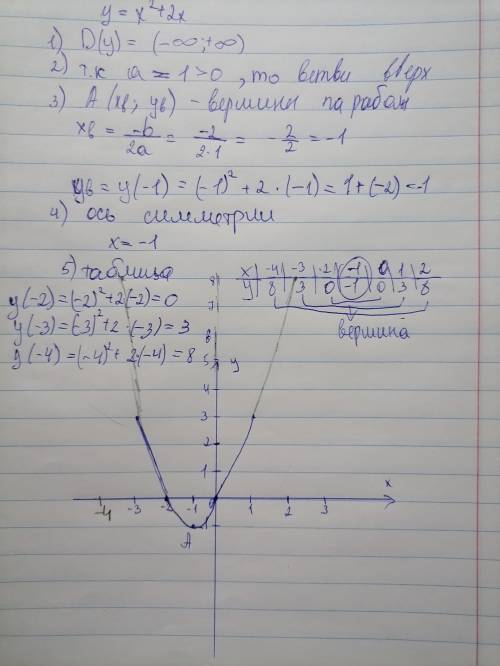 y = x²+2x
1) D(y) = (-∞;+∞)
2) т.к a = 1>0, то ветви вверх
3) A (xв; yв) - вершины парабол
xв = -b/2a = -2/2·1 = -2/2 = -1
yв = y(-1) = (-1)² + 2·(-1) = 1+(-2) = -1
4) ось симметрии
x = -1
5) таблица
x | -4 | -3 | -2 | -1 | 0 | 1 | 2
y | 8 | 3 | 0 | -1 | 0 | 3 | 8
вершина
y(-2)=(-2)²+2(-2)=0
y(-3)=(-3)²+2·(-3)=3
y(-4)=(-4)²+2(-4)=8
8
7
6
5 y
4
3
2
1
x
-4 -3 -2 -1 1 2 3
A